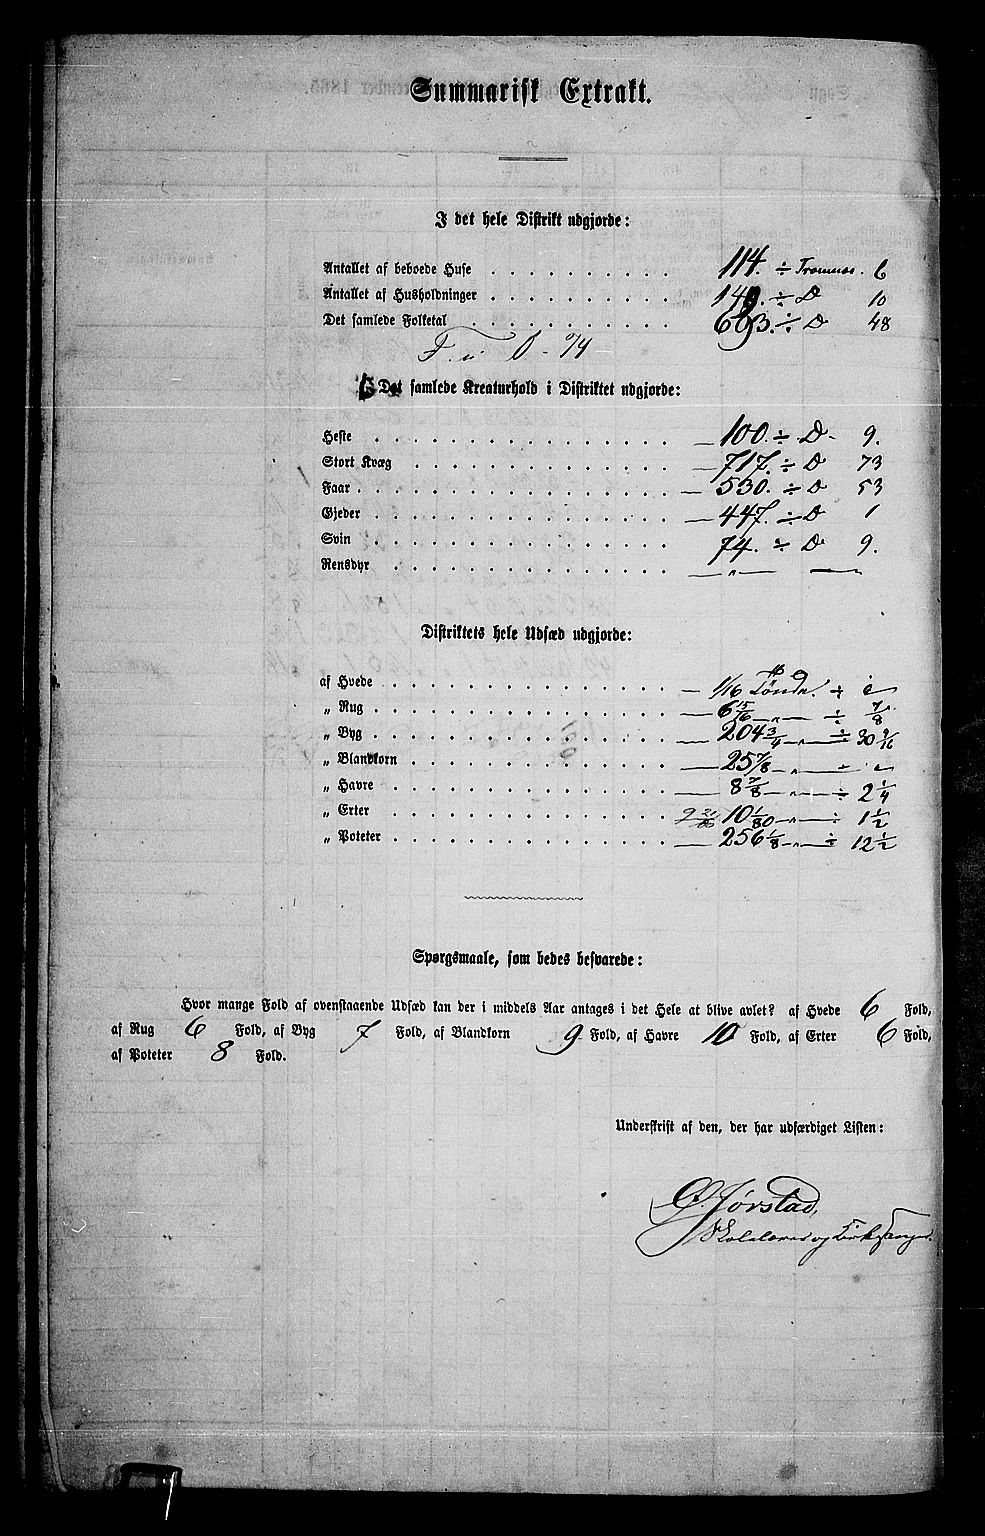 Summarisk Extrakt.
I det hele Distrikt udgjorde:
Antallet af beboede Huse . . . . . . . . . . 114. ÷ Tromnæs. 6
Antallet af Husholdninger . . . . . . . . . . ÷ D 10
Det samlede Folketal . . . . . . . . . . ÷ D 48
Det samlede Kreaturhold i Distriktet udgjorde:
Heste . . . . . . . . . . — 100. ÷ D - 9.
Stort Kvæg . . . . . . . . . . — 717. ÷ D 73
Faar . . . . . . . . . . — 530. ÷ D 53
Gjeder . . . . . . . . . . — 447. ÷ D 1
Sviin . . . . . . . . . . 74. ÷ D 9.
Rensdyr . . . . . . . . . . — „ — —
Distriktets hele Udsæd udgjorde:
af Hvede . . . . . . . . . . — 1/16 Tønde. ÷
„ Rug . . . . . . . . . . — 6 15/16 — „ — ÷ 7/8
„ Byg . . . . . . . . . . — 204 3/4 — „ — ÷ 30 9/16
„ Blandkorn . . . . . . . . . . — 25 7/8 — „ — ÷
„ Havre . . . . . . . . . . — 8 7/8 — „ — ÷ 2 1/4
„ Erter . . . . . . . . . . 10 1/80 — „ — ÷ 1 1/2
„ Poteter . . . . . . . . . . — 256 1/8 — „ — ÷ 12 1/2
Spørgsmaale, som bedes besvarede:
Hvor mange Fold af ovenstaaende Udsæd kan der i middels Aar antages i det Hele at blive avlet? af Hvede 6 Fold,
af Rug 6 Fold, af Byg 7 Fold, af Blandkorn 9 Fold, af Havre 10 Fold, af Erter 6 Fold,
af Poteter 8 Fold.
Underskrift af den, der har udfærdiget Listen:
Ø. Jørstad,
Skolelærer og Kirkesanger.